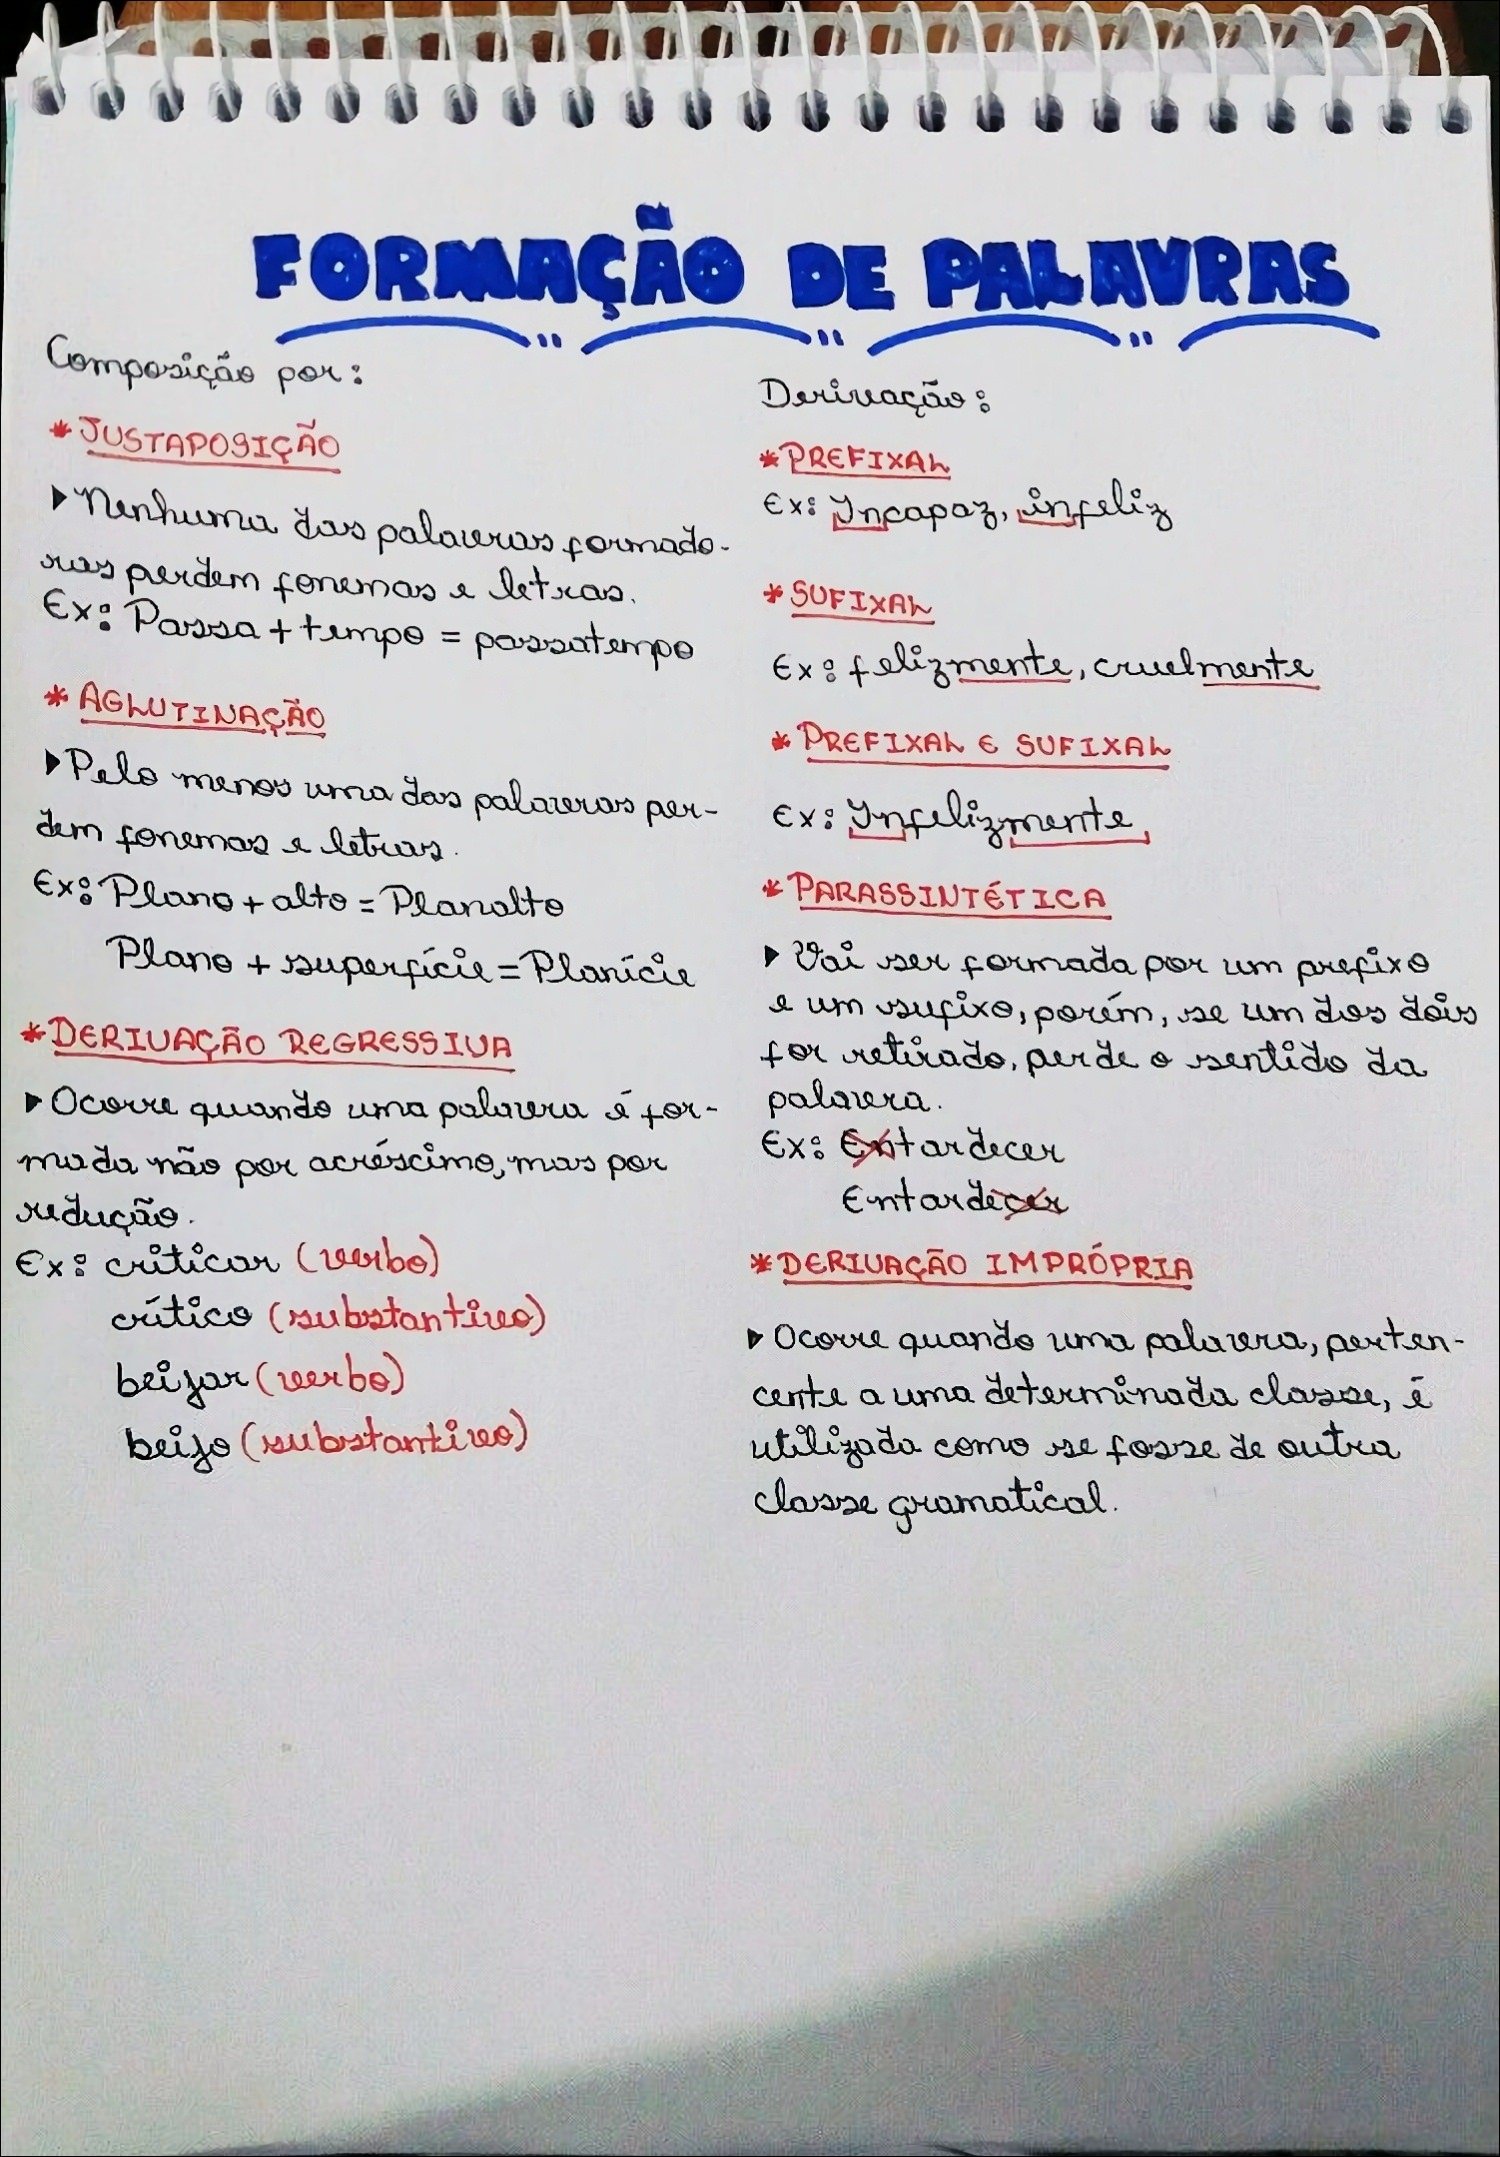 FORMAÇÃO DE PALAVRAS
Composição por:
* JUSTAPOSIÇÃO
▶ Nenhuma das palavras formado-
ras perdem fonemas e letras.
Ex: Passa + tempo = passatempo
* AGLUTINAÇÃO
▶ Pelo menos uma das palavras per-
dem fonemas e letras.
Ex: Plano + alto = Planalto
Plano + superfície = Planície
* DERIVAÇÃO REGRESSIVA
▶ Ocorre quando uma palavra é for-
mada não por acréscimo, mas por
redução.
Ex: criticar (verbo)
crítico (substantivo)
beijar (verbo)
beijo (substantivo)
Derivação:
* PREFIXAL
Ex: Incapaz, infeliz
* SUFIXAL
Ex: felizmente, cruelmente
* PREFIXAL E SUFIXAL
Ex: Infelizmente
* PARASSINTÉTICA
▶ Vai ser formada por um prefixo
e um sufixo, porém, se um dos dois
for retirado, perde o sentido da
palavra.
Ex: Entardecer
Entardecer
* DERIVAÇÃO IMPRÓPRIA
▶ Ocorre quando uma palavra, perten-
cente a uma determinada classe, é
utilizada como se fosse de outra
classe gramatical.